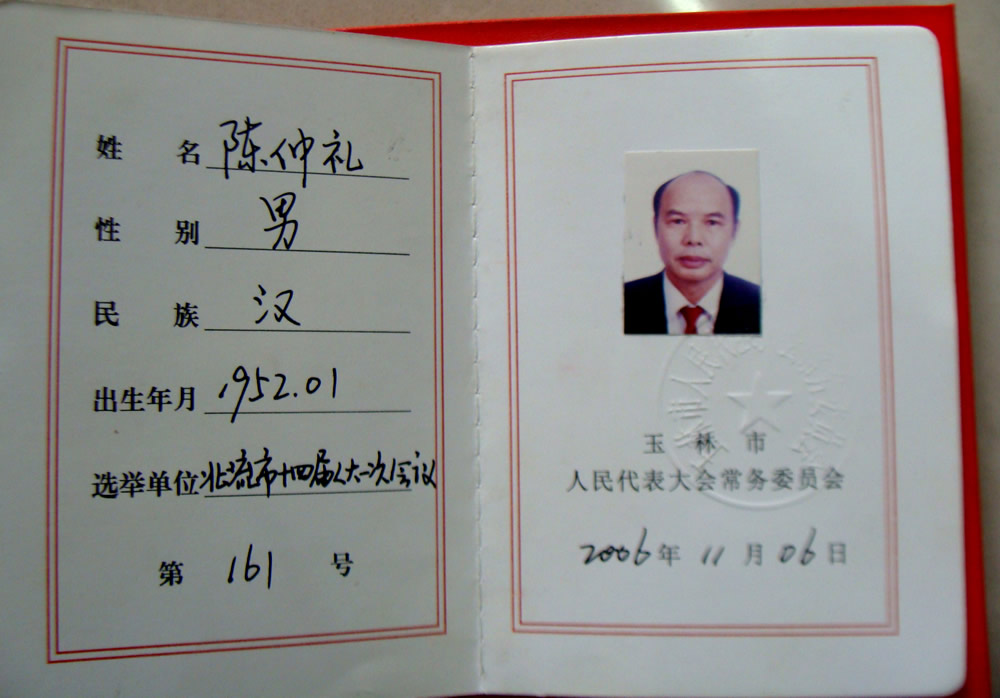 姓 名 陈仲礼
性 别 男
民 族 汉
出生年月 1952.01
选举单位 北流市十四届人大一次会议
第 161 号
玉 林 市
人民代表大会常务委员会
2006年 11月 06日